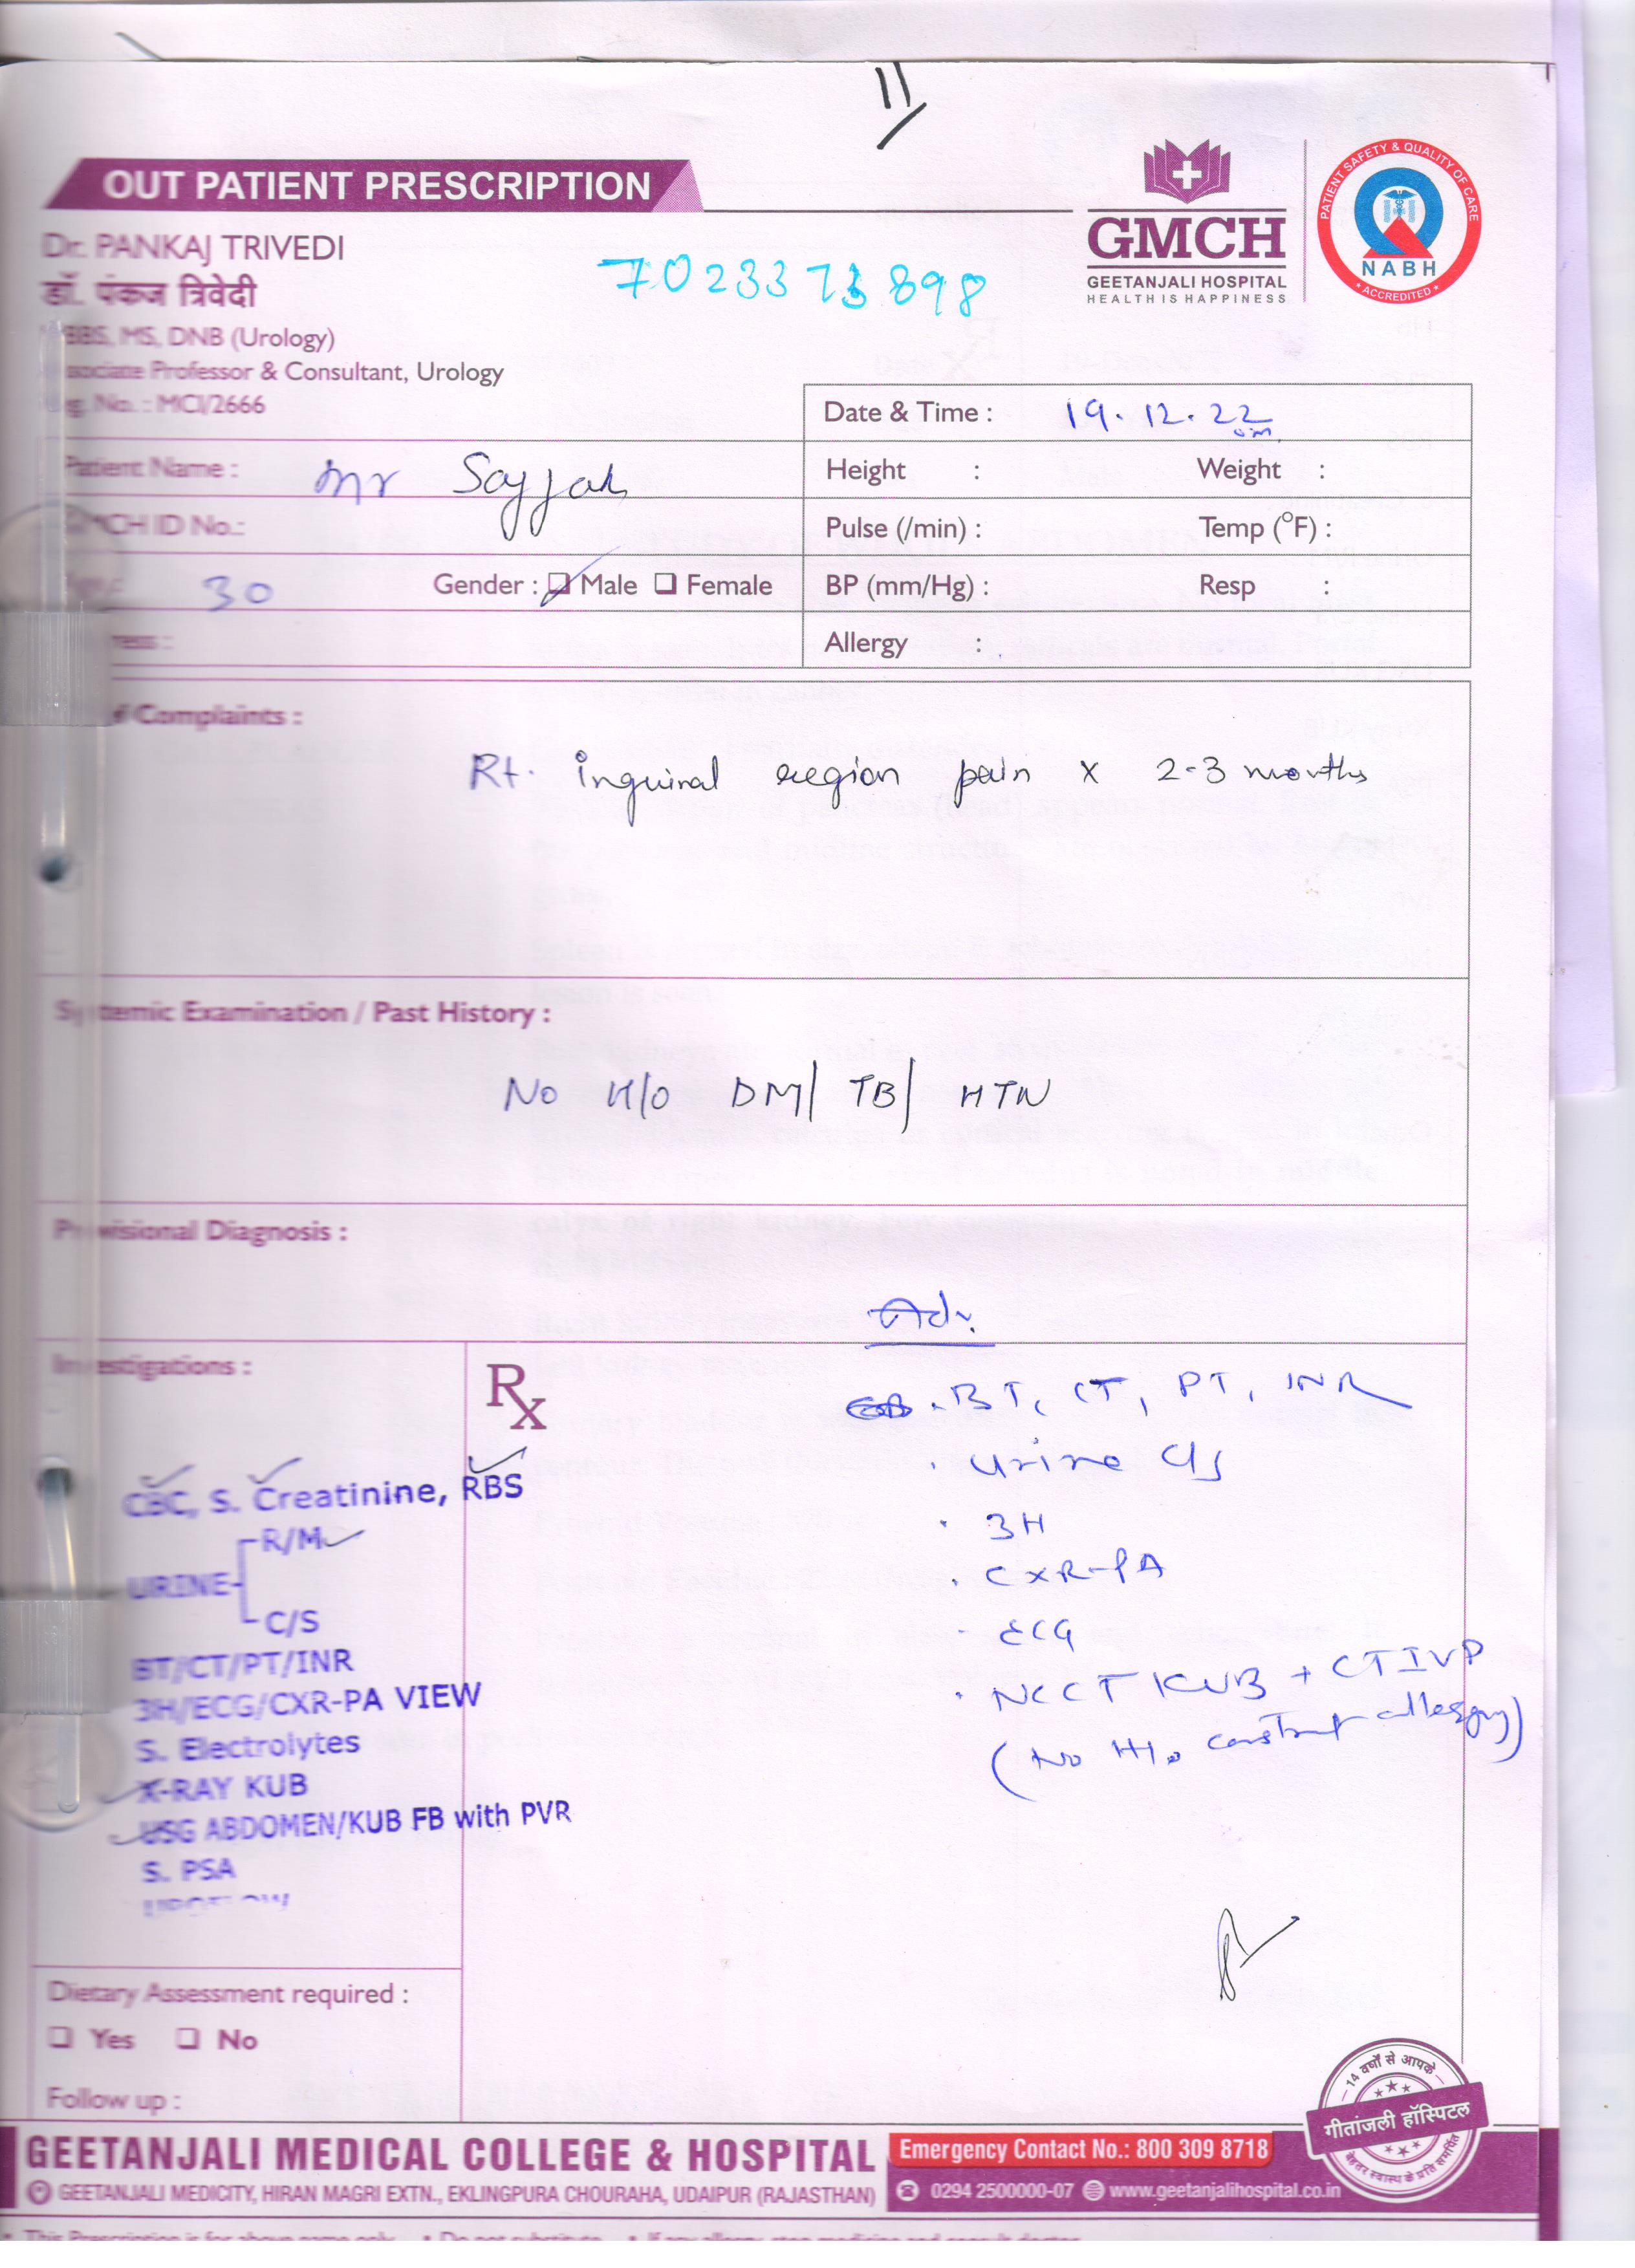 11
OUT PATIENT PRESCRIPTION
GMCH
GEETANJALI HOSPITAL
HEALTH IS HAPPINESS
PATIENT SAFETY & QUALITY OF CARE
NABH
ACCREDITED
Dr. PANKAJ TRIVEDI
डॉ. पंकज त्रिवेदी
7023373898
BBS, MS, DNB (Urology)
sociate Professor & Consultant, Urology
g. No. : MCI/2666
Date & Time : 19.12.22
Patient Name : Mr Sajjah
Height : Weight :
CH ID No.:
Pulse (/min) : Temp (°F) :
30 Gender : Male Female
BP (mm/Hg) : Resp :
ress :
Allergy :
f Complaints :
Rt. inguinal region pain x 2-3 months
Systemic Examination / Past History :
No H/O DM/ TB/ HTN
Provisional Diagnosis :
Adv.
Investigations :
Rx
. BT, CT, PT, INR
. Urine C/S
. 3H
. CXR-PA
- ECG
. NCCT KUB + CTIVP
(No H/o contrast allergy)
CBC, S. Creatinine, RBS
URINE
R/M
C/S
BT/CT/PT/INR
3H/ECG/CXR-PA VIEW
S. Electrolytes
X-RAY KUB
USG ABDOMEN/KUB FB with PVR
S. PSA
Dietary Assessment required :
Yes No
Follow up :
14 वर्षों से आपके
गीतांजली हॉस्पिटल
बेहतर स्वास्थ के प्रति समर्पित
GEETANJALI MEDICAL COLLEGE & HOSPITAL
Emergency Contact No.: 800 309 8718
GEETANJALI MEDICITY, HIRAN MAGRI EXTN., EKLINGPURA CHOURAHA, UDAIPUR (RAJASTHAN)
0294 2500000-07 www.geetanjalihospital.co.in
This Prescription is for above name only • Do not substitute • If any allergy stop medicine and consult doctor